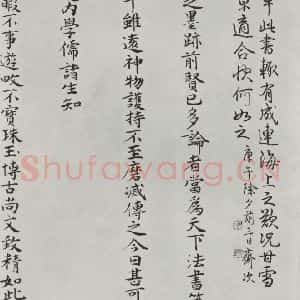 此書輒有成連海上之歎況甘雪
適合快何如之
庚午除夕前三日齊次
之墨跡前賢已多論者當為天下法書第
年雖遠神物護持不至磨滅傳之今日甚可
內學儒諸生知
暇不事遊畋不寶珠玉博古尚文致精如此
Shufawang.CN